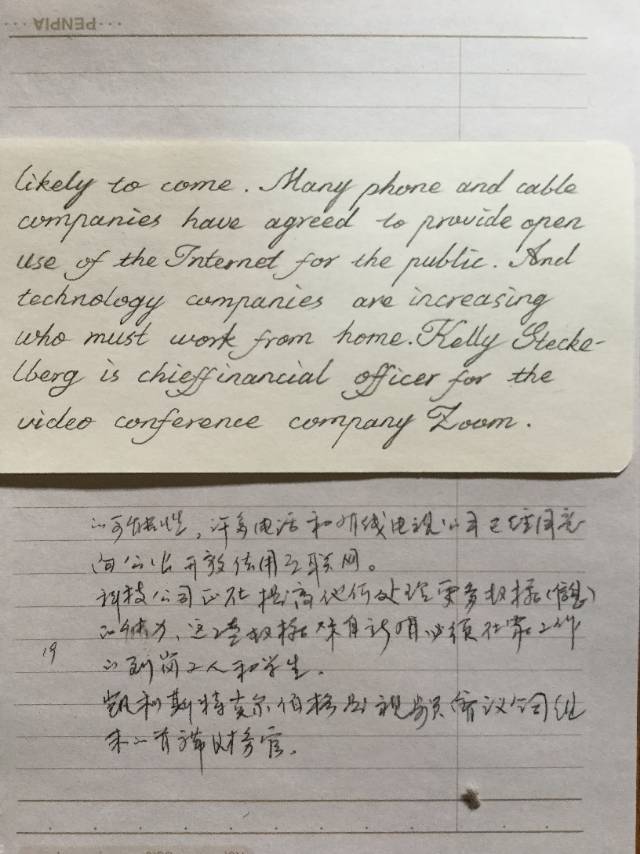 PENPIA
likely to come. Many phone and cable
companies have agreed to provide open
use of the Internet for the public. And
technology companies are increasing
who must work from home. Kelly Stecke-
lberg is chieffinancial officer for the
video conference company Zoom.
的可能性，许多电话和有线电视公司已经同意
向公众开放使用互联网。
科技公司正在提高他们处理更多数据（信息）
的能力，这些数据来自许多必须在家工作
19
的到岗工人和学生。
凯利斯特克尔伯格是视频会议公司
首席财务官。